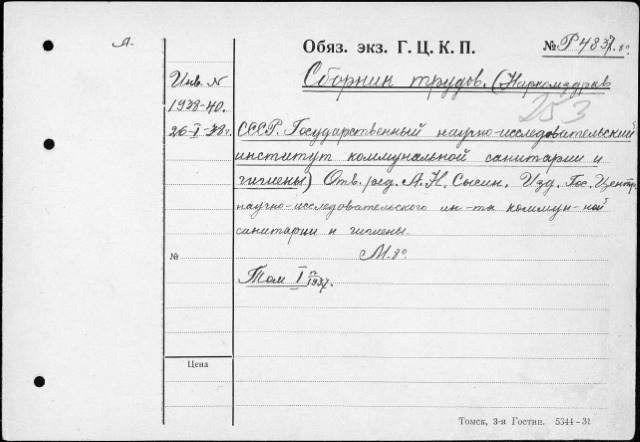 А.
Обяз. экз. Г. Ц. К. П.
№ Р483/7. 8°
Инв. N
1938-40.
26-I-38г.
Сборник трудов. (Наркомздрав
253
СССР. Государственный научно-исследовательский
институт коммунальной санитарии и
гигиены) Отв. ред. А. Н. Сысин. Изд. Гос. Центр.
научно-исследовательского ин-та коммун-ной
санитарии и гигиены.
М. 8°
№
Том I 1937.
Цена
Томск, 3-я Гостип. 5344-31